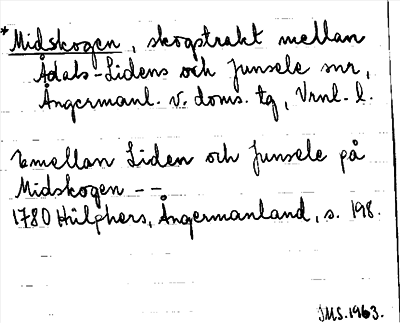 *Midskogen, skogstrakt mellan
Ådals-Lidens och Junsele snr,
Ångermanl. v. doms. tg, Vrnl. l.
emellan Liden och Junsele på
Midskogen --
1780 Hülphers, Ångermanland, s. 198.
JMS. 1963.